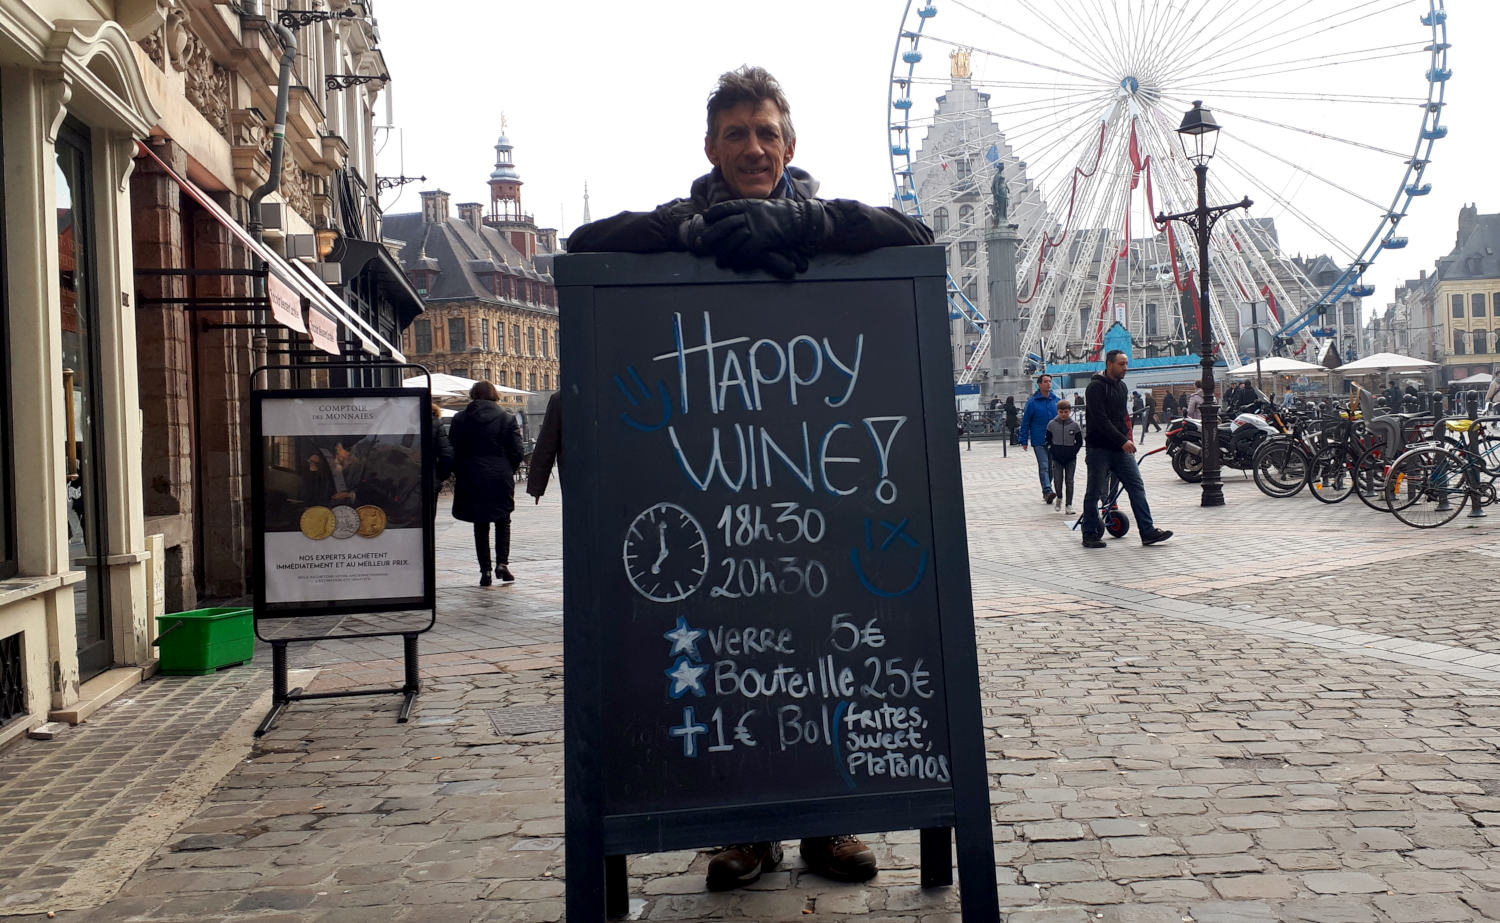 HAPPY
WINE!
18h30
20h30
VERRE 5€
Bouteille 25€
+1€ Bol
frites,
sweet,
Platanos
COMPTOIR
DES MONNAIES
NOS EXPERTS RACHÈTENT
IMMÉDIATEMENT ET AU MEILLEUR PRIX.